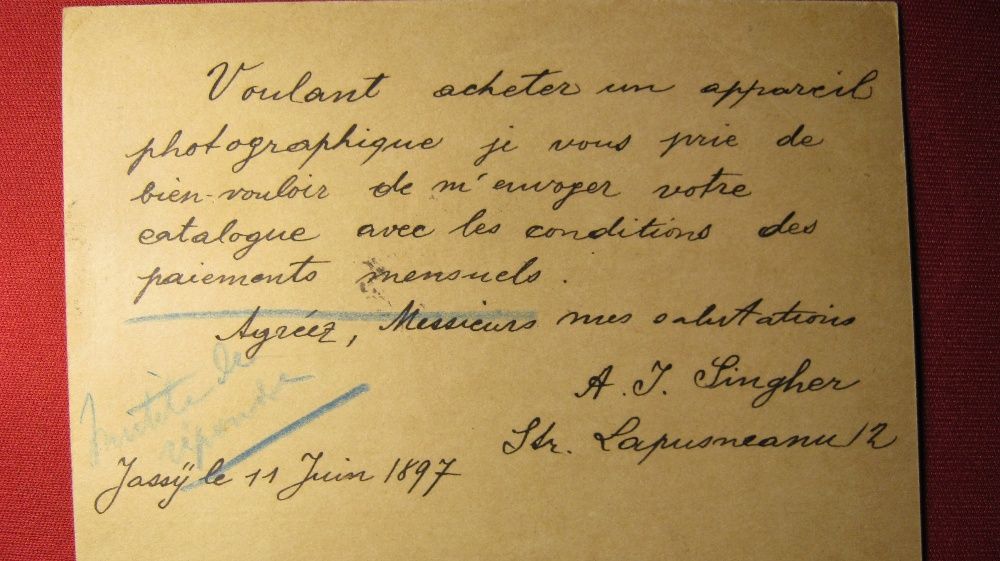 Voulant acheter un appareil
photographique je vous prie de
bien-vouloir de m'envoyer votre
catalogue avec les conditions des
paiements mensuels.
Agréez, Messieurs mes salutations
A. J. Singher
Str. Lapusneanu 12
Inutile de
répondre
Jassÿ le 11 Juin 1897